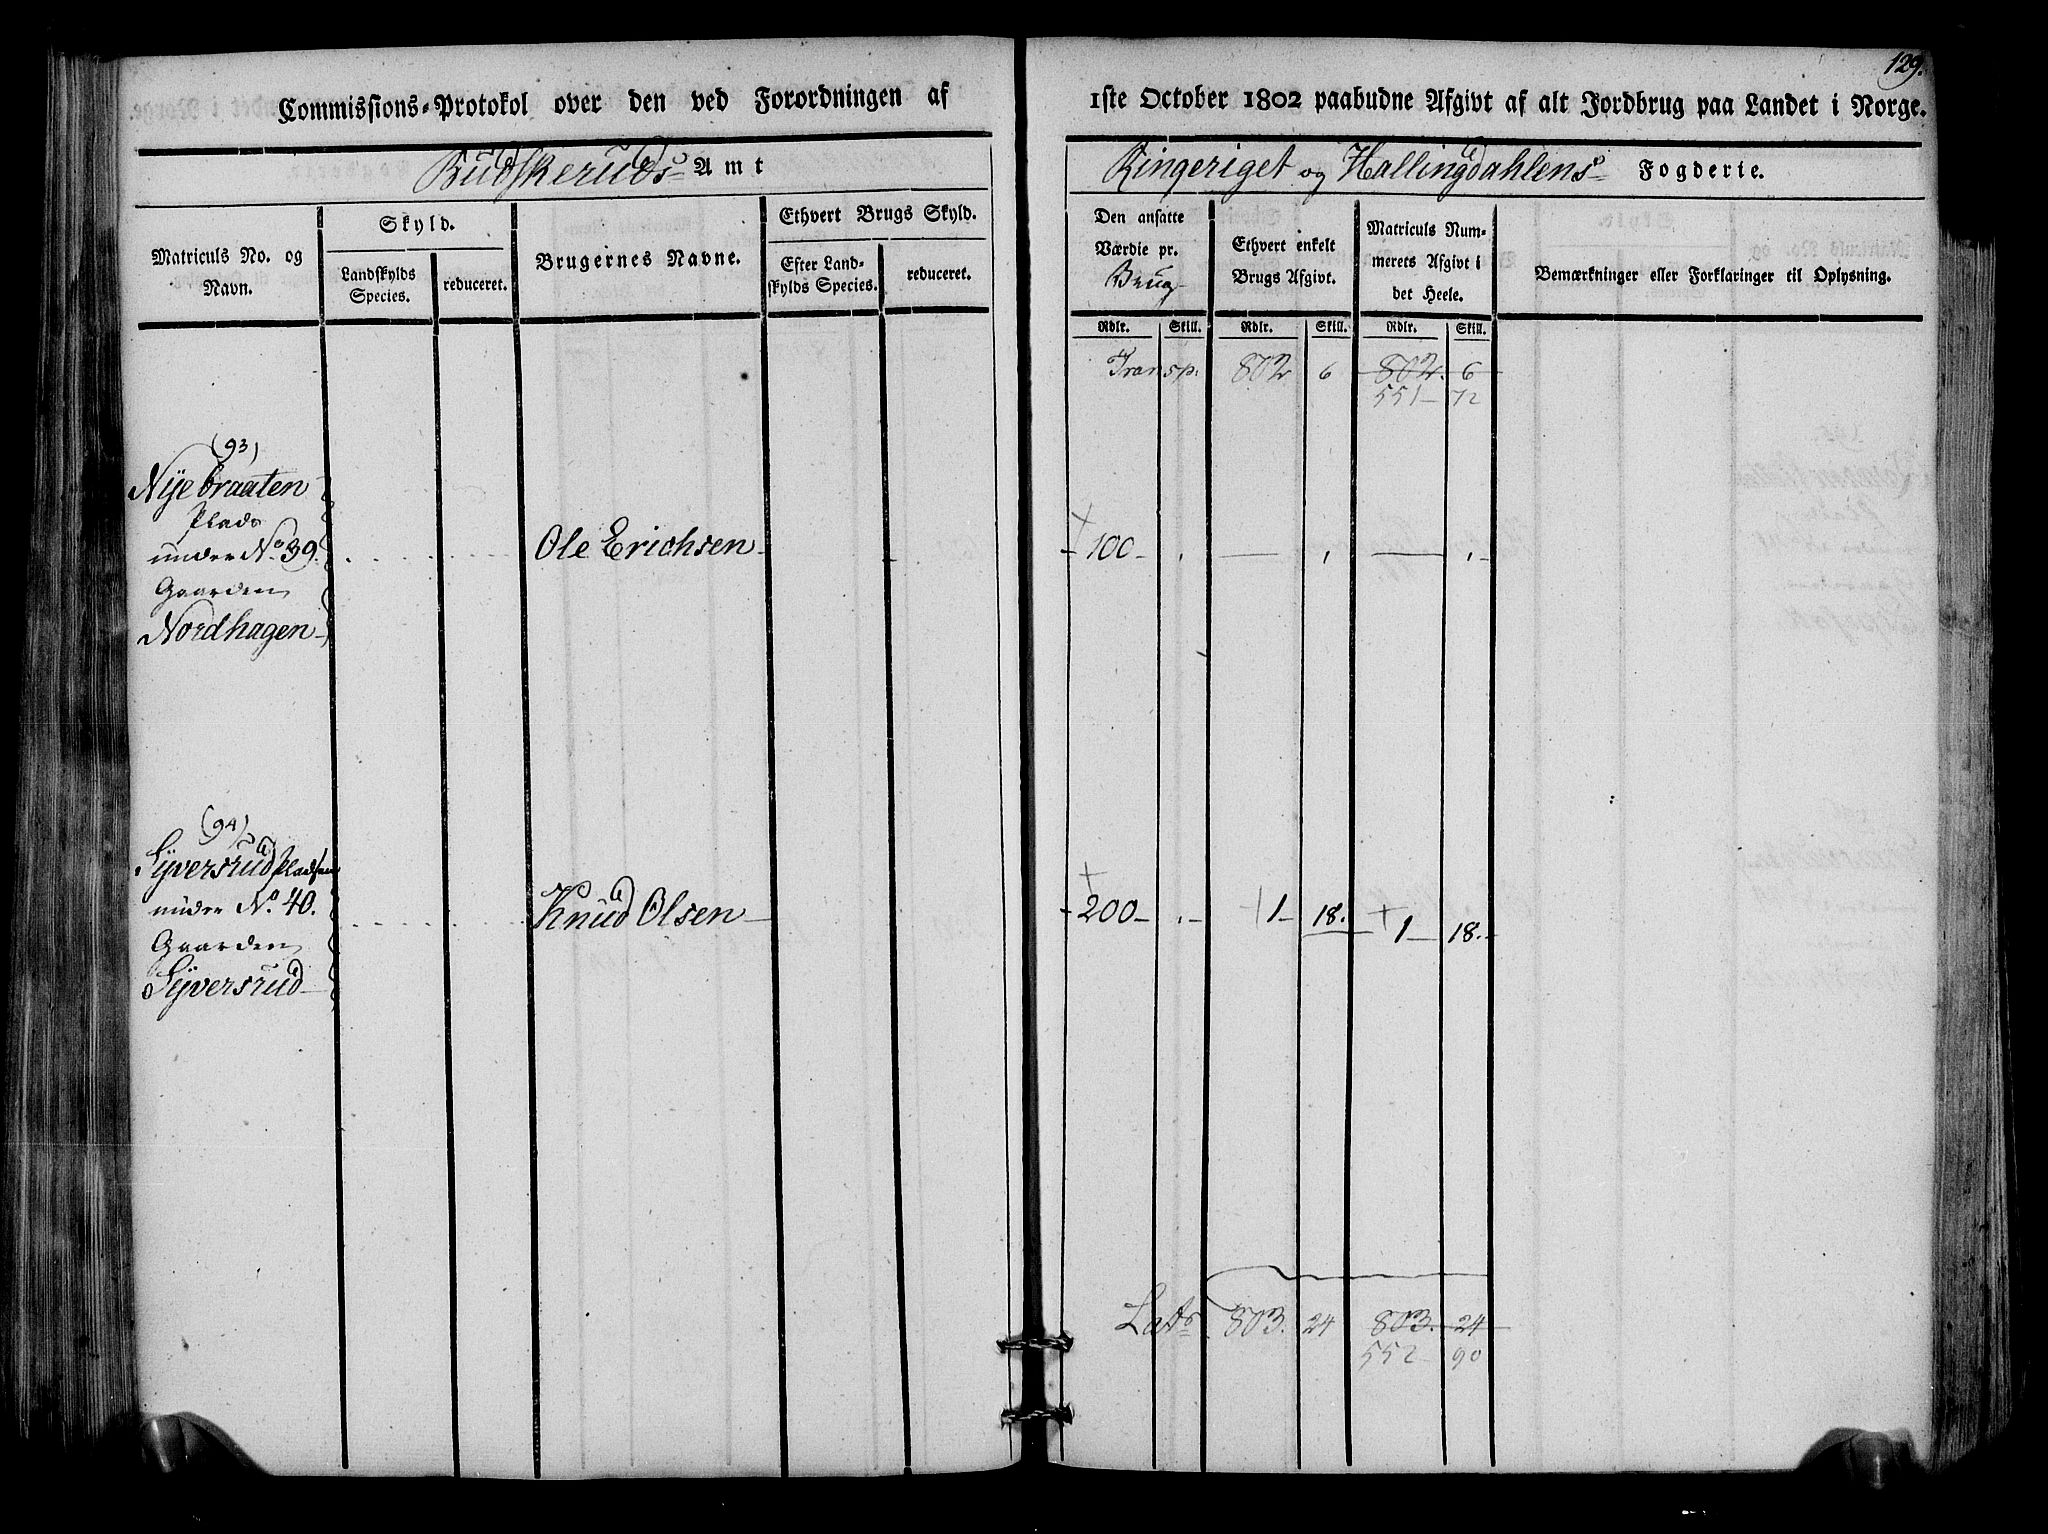 129.
Commissions-Protokol over den ved Forordningen af 1ste October 1802 paabudne Afgivt af alt Jordbrug paa Landet i Norge.
Budskeruds Amt
Ringeriget og Hallingdahlens Fogderie.
Matriculs No. og Navn.
Skyld.
Landskylds Species.
reduceret.
Brugernes Navne.
Ethvert Brugs Skyld.
Efter Landskylds Species.
reduceret.
Den ansatte Værdie pr. Brug
Ethvert enkelt Brugs Afgivt.
Matriculs Nummerets Afgivt i det Heele.
Bemærkninger eller Forklaringer til Oplysning.
Rdlr. Skill. Rdlr. Skill. Rdlr. Skill.
Transp. 802 6 802. 6
551 72
(93)
Nÿebraaten
Plads
under No. 39. Ole Erichsen 100
Gaarden
Nordhagen
(94)
Syversrud Pladsen
under No. 40. Knud Olsen 200 1 18. 1 18.
Gaarden
Syversrud
Lats 803. 24 803. 24
552 90